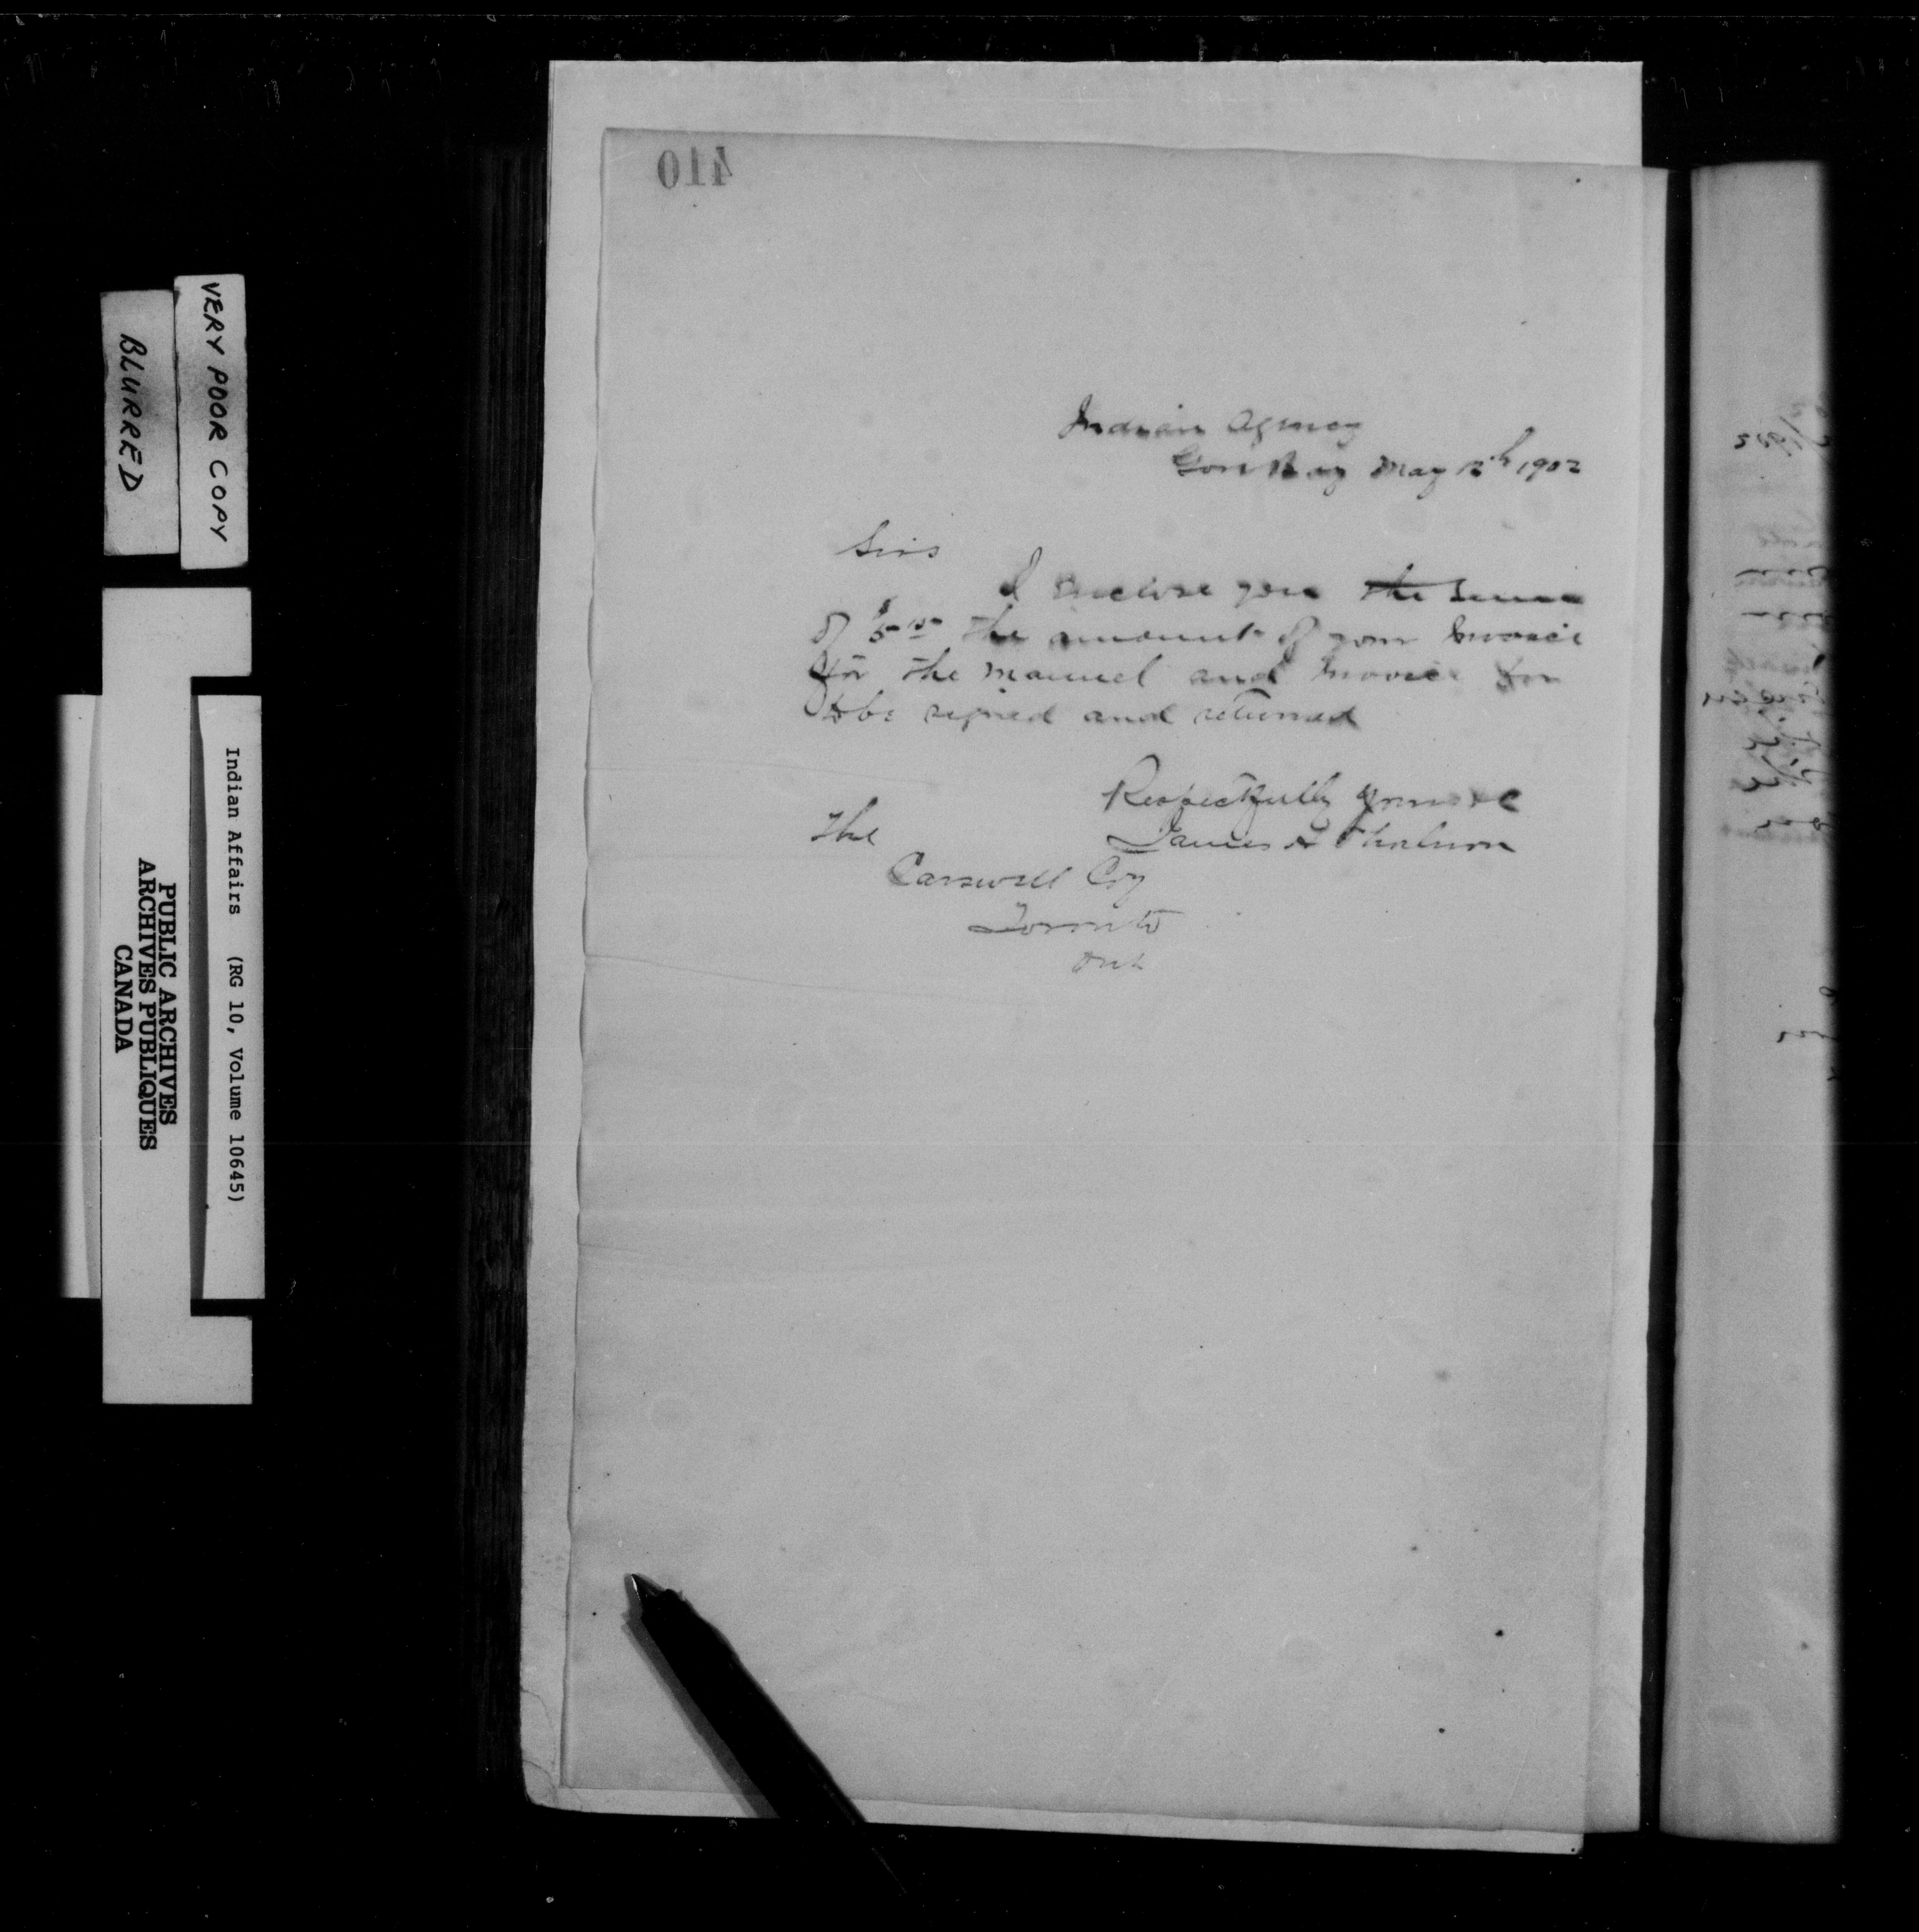 410
Indian Agency
Gore Bay May 12th 1902
Sirs
I enclose you the sum
of $5 the amount of your Invoice
for the manuel and Invoice for
to be signed and returned
Respectfully yours
James
The
Carswell Coy
Toronto
Ont
VERY POOR COPY
BLURRED
Indian Affairs (RG 10, Volume 10645)
PUBLIC ARCHIVES
ARCHIVES PUBLIQUES
CANADA